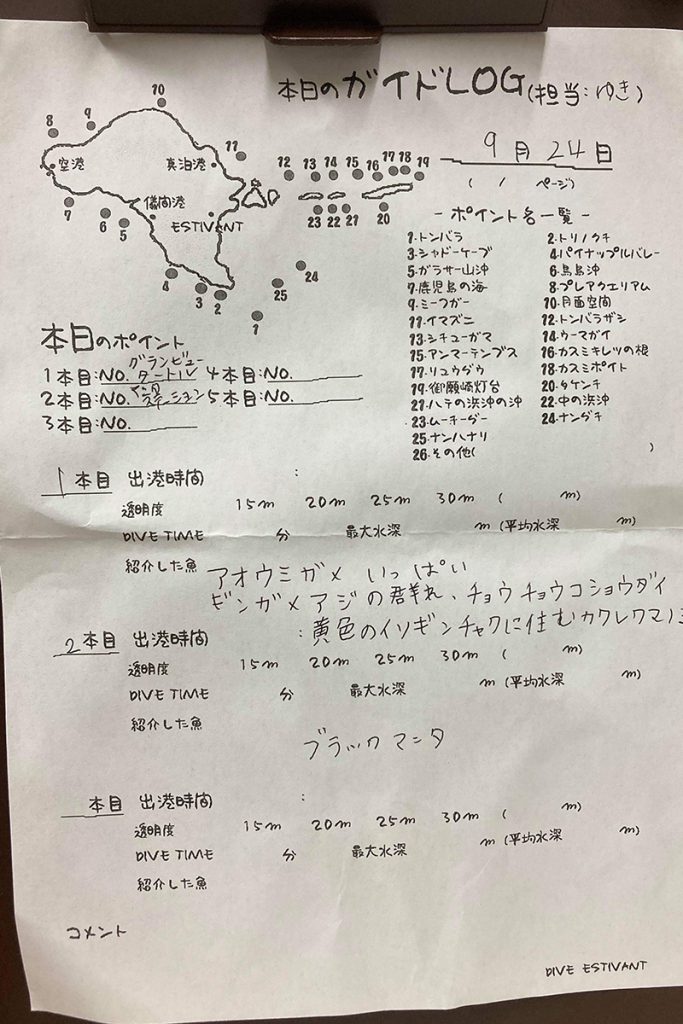 本日のガイドLOG(担当:ゆき)
9月24日
( / ページ)
10
9
8
空港
真泊港
11
12 13 14 15 16 17 18 19
儀間港
7
6
5
ESTIVANT
23 22 21
20
4
3
2
24
25
1
- ポイント名一覧 -
1.トンバラ 2.トリノクチ
3.シャドーケーブ 4.パイナップルバレー
5.ガラサー山沖 6.鳥島沖
7.鹿児島の海 8.プレアクエリアム
9.ミーフガー 10.月面空間
11.イマズニ 12.トンバラザシ
13.シチューガマ 14.ウーマガイ
15.アンマーテンプス 16.カスミキレツの根
17.リュウグウ 18.カスミポイト
19.御願崎灯台 20.タケンチ
21.ハテの浜沖の沖 22.中の浜沖
23.ムーチーグー 24.ナングチ
25.ナンハナリ
26.その他( )
本日のポイント
1本目:NO.グランビュータートル 4本目:NO.
2本目:NO.ステーション 5本目:NO.
3本目:NO.
1本目 出港時間 :
透明度 15m 20m 25m 30m ( m)
DIVE TIME 分 最大水深 m (平均水深 m)
紹介した魚 アオウミガメ いっぱい
ギンガメアジの群れ、チョウチョウコショウダイ
黄色のイソギンチャクに住むカクレクマノミ
2本目 出港時間 :
透明度 15m 20m 25m 30m ( m)
DIVE TIME 分 最大水深 m (平均水深 m)
紹介した魚
ブラックマンタ
本目 出港時間 :
透明度 15m 20m 25m 30m ( m)
DIVE TIME 分 最大水深 m (平均水深 m)
紹介した魚
コメント
DIVE ESTIVANT